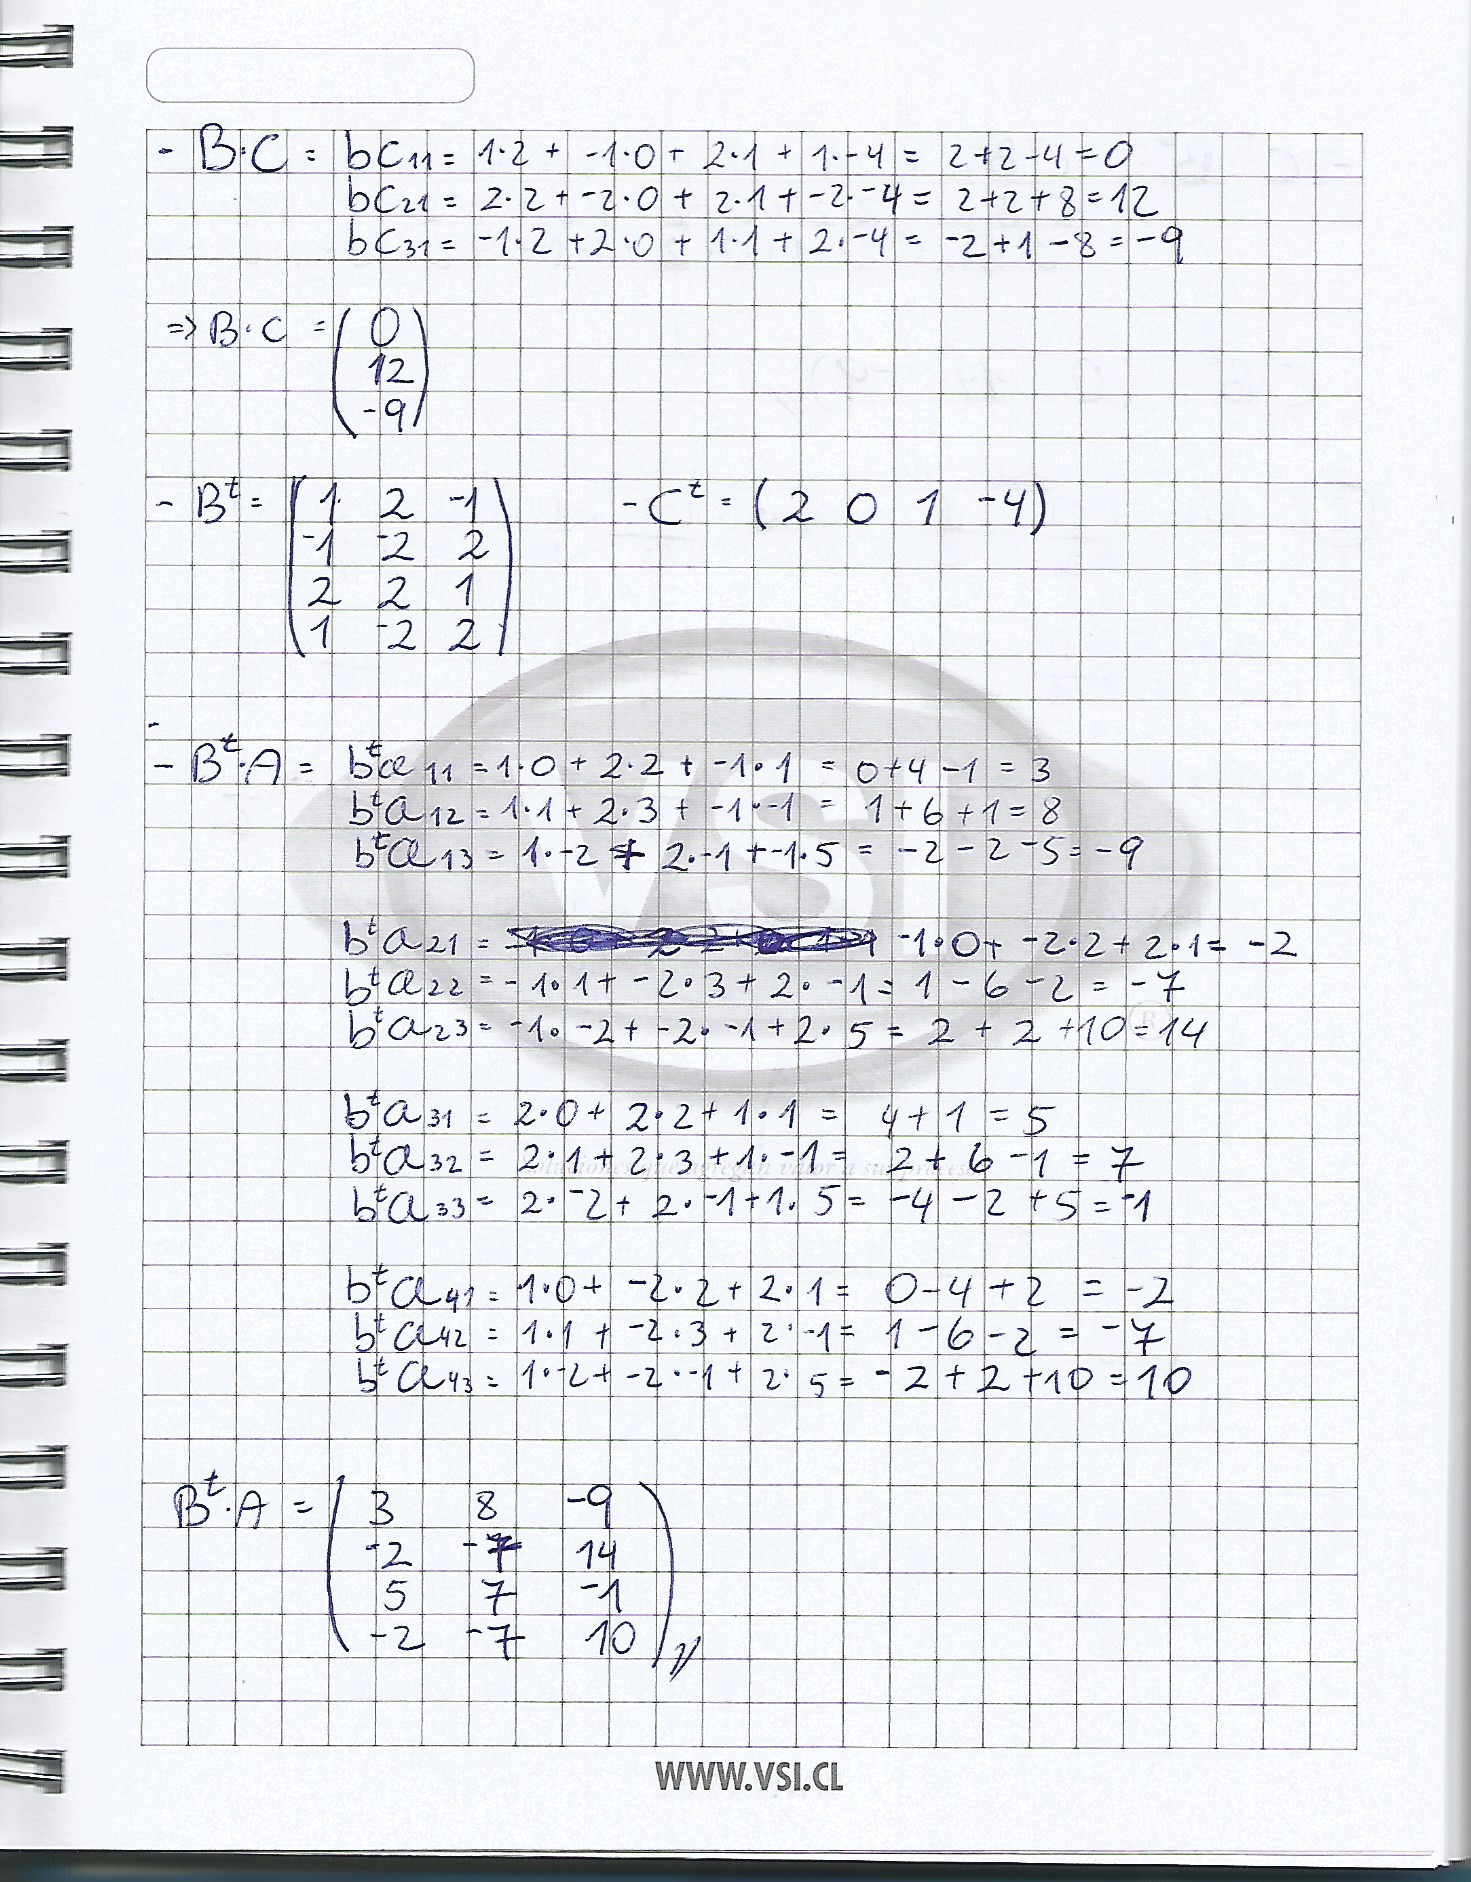 - B·C = bc11 = 1·2 + -1·0 + 2·1 + 1·-4 = 2+2-4=0
bc21 = 2·2 + -2·0 + 2·1 + -2·-4 = 2+2+8=12
bc31 = -1·2 +2·0 + 1·1 + 2·-4 = -2+1-8=-9
=> B·C = ( 0
12
-9 )
- Bᵗ = ( 1 2 -1
-1 -2 2
2 2 1
1 -2 2 )
- Cᵗ = (2 0 1 -4)
- Bᵗ·A = bᵗa11 = 1·0 + 2·2 + -1·1 = 0+4-1 = 3
bᵗa12 = 1·1 + 2·3 + -1·-1 = 1+6+1=8
bᵗa13 = 1·-2 + 2·-1 + -1·5 = -2-2-5=-9
bᵗa21 = -1·0+ -2·2+2·1= -2
bᵗa22 = -1·1+ -2·3+2·-1= 1-6-2 = -7
bᵗa23 = -1·-2+ -2·-1+2·5 = 2 + 2 +10=14
bᵗa31 = 2·0+ 2·2+1·1 = 4+1 = 5
bᵗa32 = 2·1+2·3+1·-1= 2+6-1 = 7
bᵗa33 = 2·-2+ 2·-1+1·5= -4-2+5=-1
bᵗa41 = 1·0+ -2·2+2·1= 0-4+2 = -2
bᵗa42 = 1·1 + -2·3 + 2·-1= 1-6-2 = -7
bᵗa43 = 1·-2+ -2·-1+ 2·5= -2+2+10=10
Bᵗ·A = ( 3 8 -9
-2 -7 14
5 7 -1
-2 -7 10 )
VSI
WWW.VSI.CL